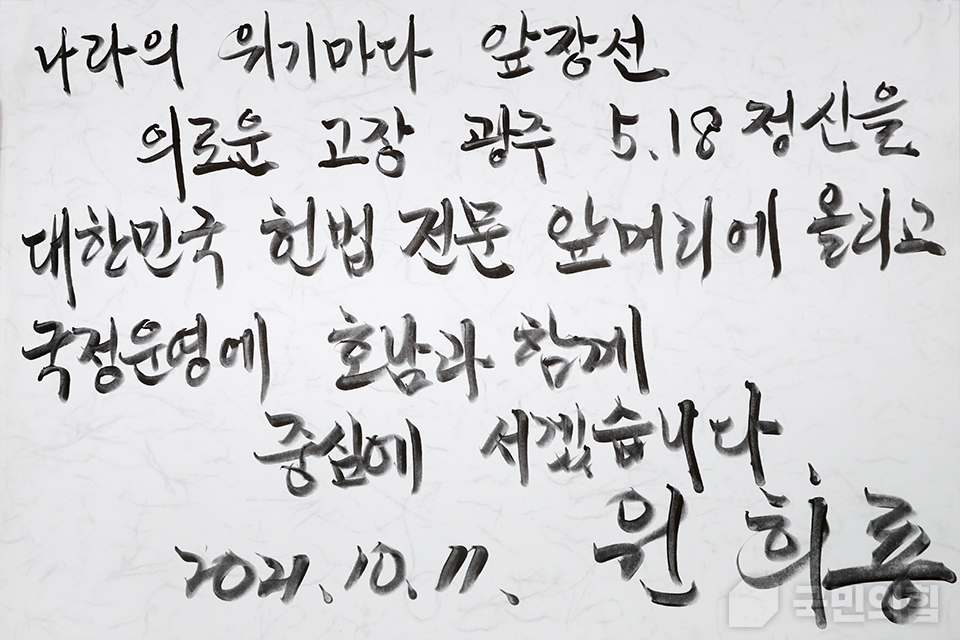 나라의 위기마다 앞장선
의로운 고장 광주 5.18 정신을
대한민국 헌법 전문 앞머리에 올리고
국정운영에 호남과 함께
중심에 서겠습니다.
2021.10.11. 원희룡
국민의힘